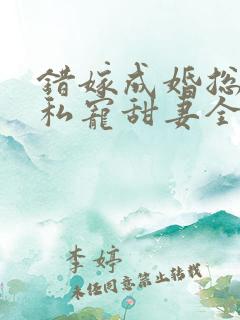 错嫁成婚总
私宠甜妻全
李婷
未经同意禁止转载